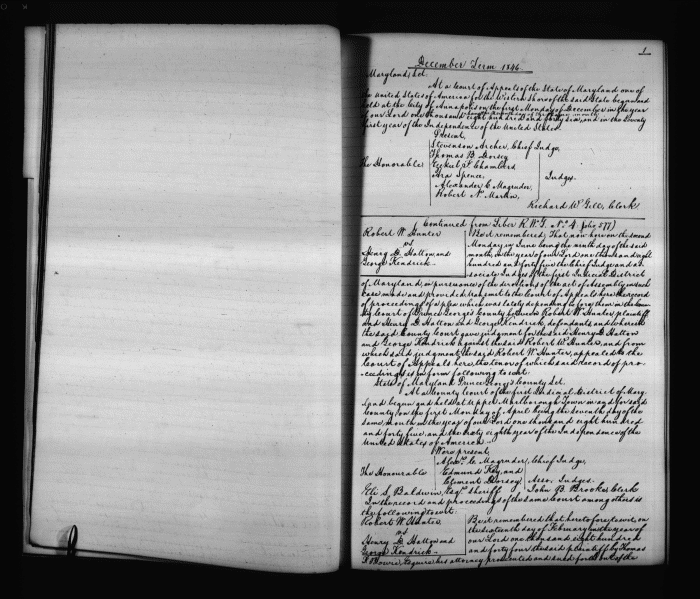 1
December Term 1846
Maryland, Sct.
At a Court of Appeals of the State of Maryland one of
the United States of America for the Western Shore of the said State begun and
held at the City of Annapolis on the first Monday of December in the year
of our Lord one thousand eight hundred and forty six, and in the Seventy
first year of the Independence of the United States.
Present,
Stevenson Archer, Chief Judge,
Thomas B. Dorsey
The Honorable Ezekiel F. Chambers
Ara Spence, Judges.
Alexander C. Magruder,
Robert N. Martin,
Richard W. Gill, Clerk
Continued from Liber R.W.G. No. 4 folio 577)
Robert W. Hunter
vs
Henry D. Hatton and
George Kendrick.
Be it remembered, That now here on the second
Monday in June being the ninth day of the said
month, in the year of our Lord one thousand eight
hundred and forty five the Chief Judge and as-
sociate Judges of the first Judicial District
of Maryland, in pursuance of the directions of the act of Assembly in such
case made and provided, transmit to the Court of Appeals here, the record
of proceedings of a plea which was lately depending before them in the Coun-
ty Court of Prince George's County between Robert W. Hunter, plaintiff
and Henry D. Hatton and George Kendrick, defendants, and wherein
the said County Court gave judgment for the said Henry D. Hatton
and George Kendrick against the said Robert W. Hunter, and from
which said judgment the said Robert W. Hunter, appealed to the
Court of Appeals here, the tenor of which said record of pro-
ceedings is in form following to wit.
State of Maryland Prince George's County Sct.
At a County Court of the first Judicial District of Mary-
land begun and held at Upper Marlborough Town in and for said
County, on the first Monday of April being the seventh day of the
same month in the year of our Lord one thousand eight hundred
and forty five, and the sixty eighth year of the Independence of the
United States of America.
Were present,
Alexr. C. Magruder, Chief Judge,
The Honourable Edmund Key, and
Clement Dorsey, Asso. Judges.
Eli S. Baldwin, Esqr. Sheriff John B. Brooke, Clerk
In the record and proceedings of the same Court among others is
the following to wit.
Robert W. Hunter
vs
Henry D. Hatton and
George Kendrick.
Be it remembered that heretofore, to wit, on
the sixteenth day of February in the year of
our Lord one thousand eight hundred
and forty four the said plaintiff by Thomas
F. Bowie, esquire his attorney prosecuted and sued forth out of the